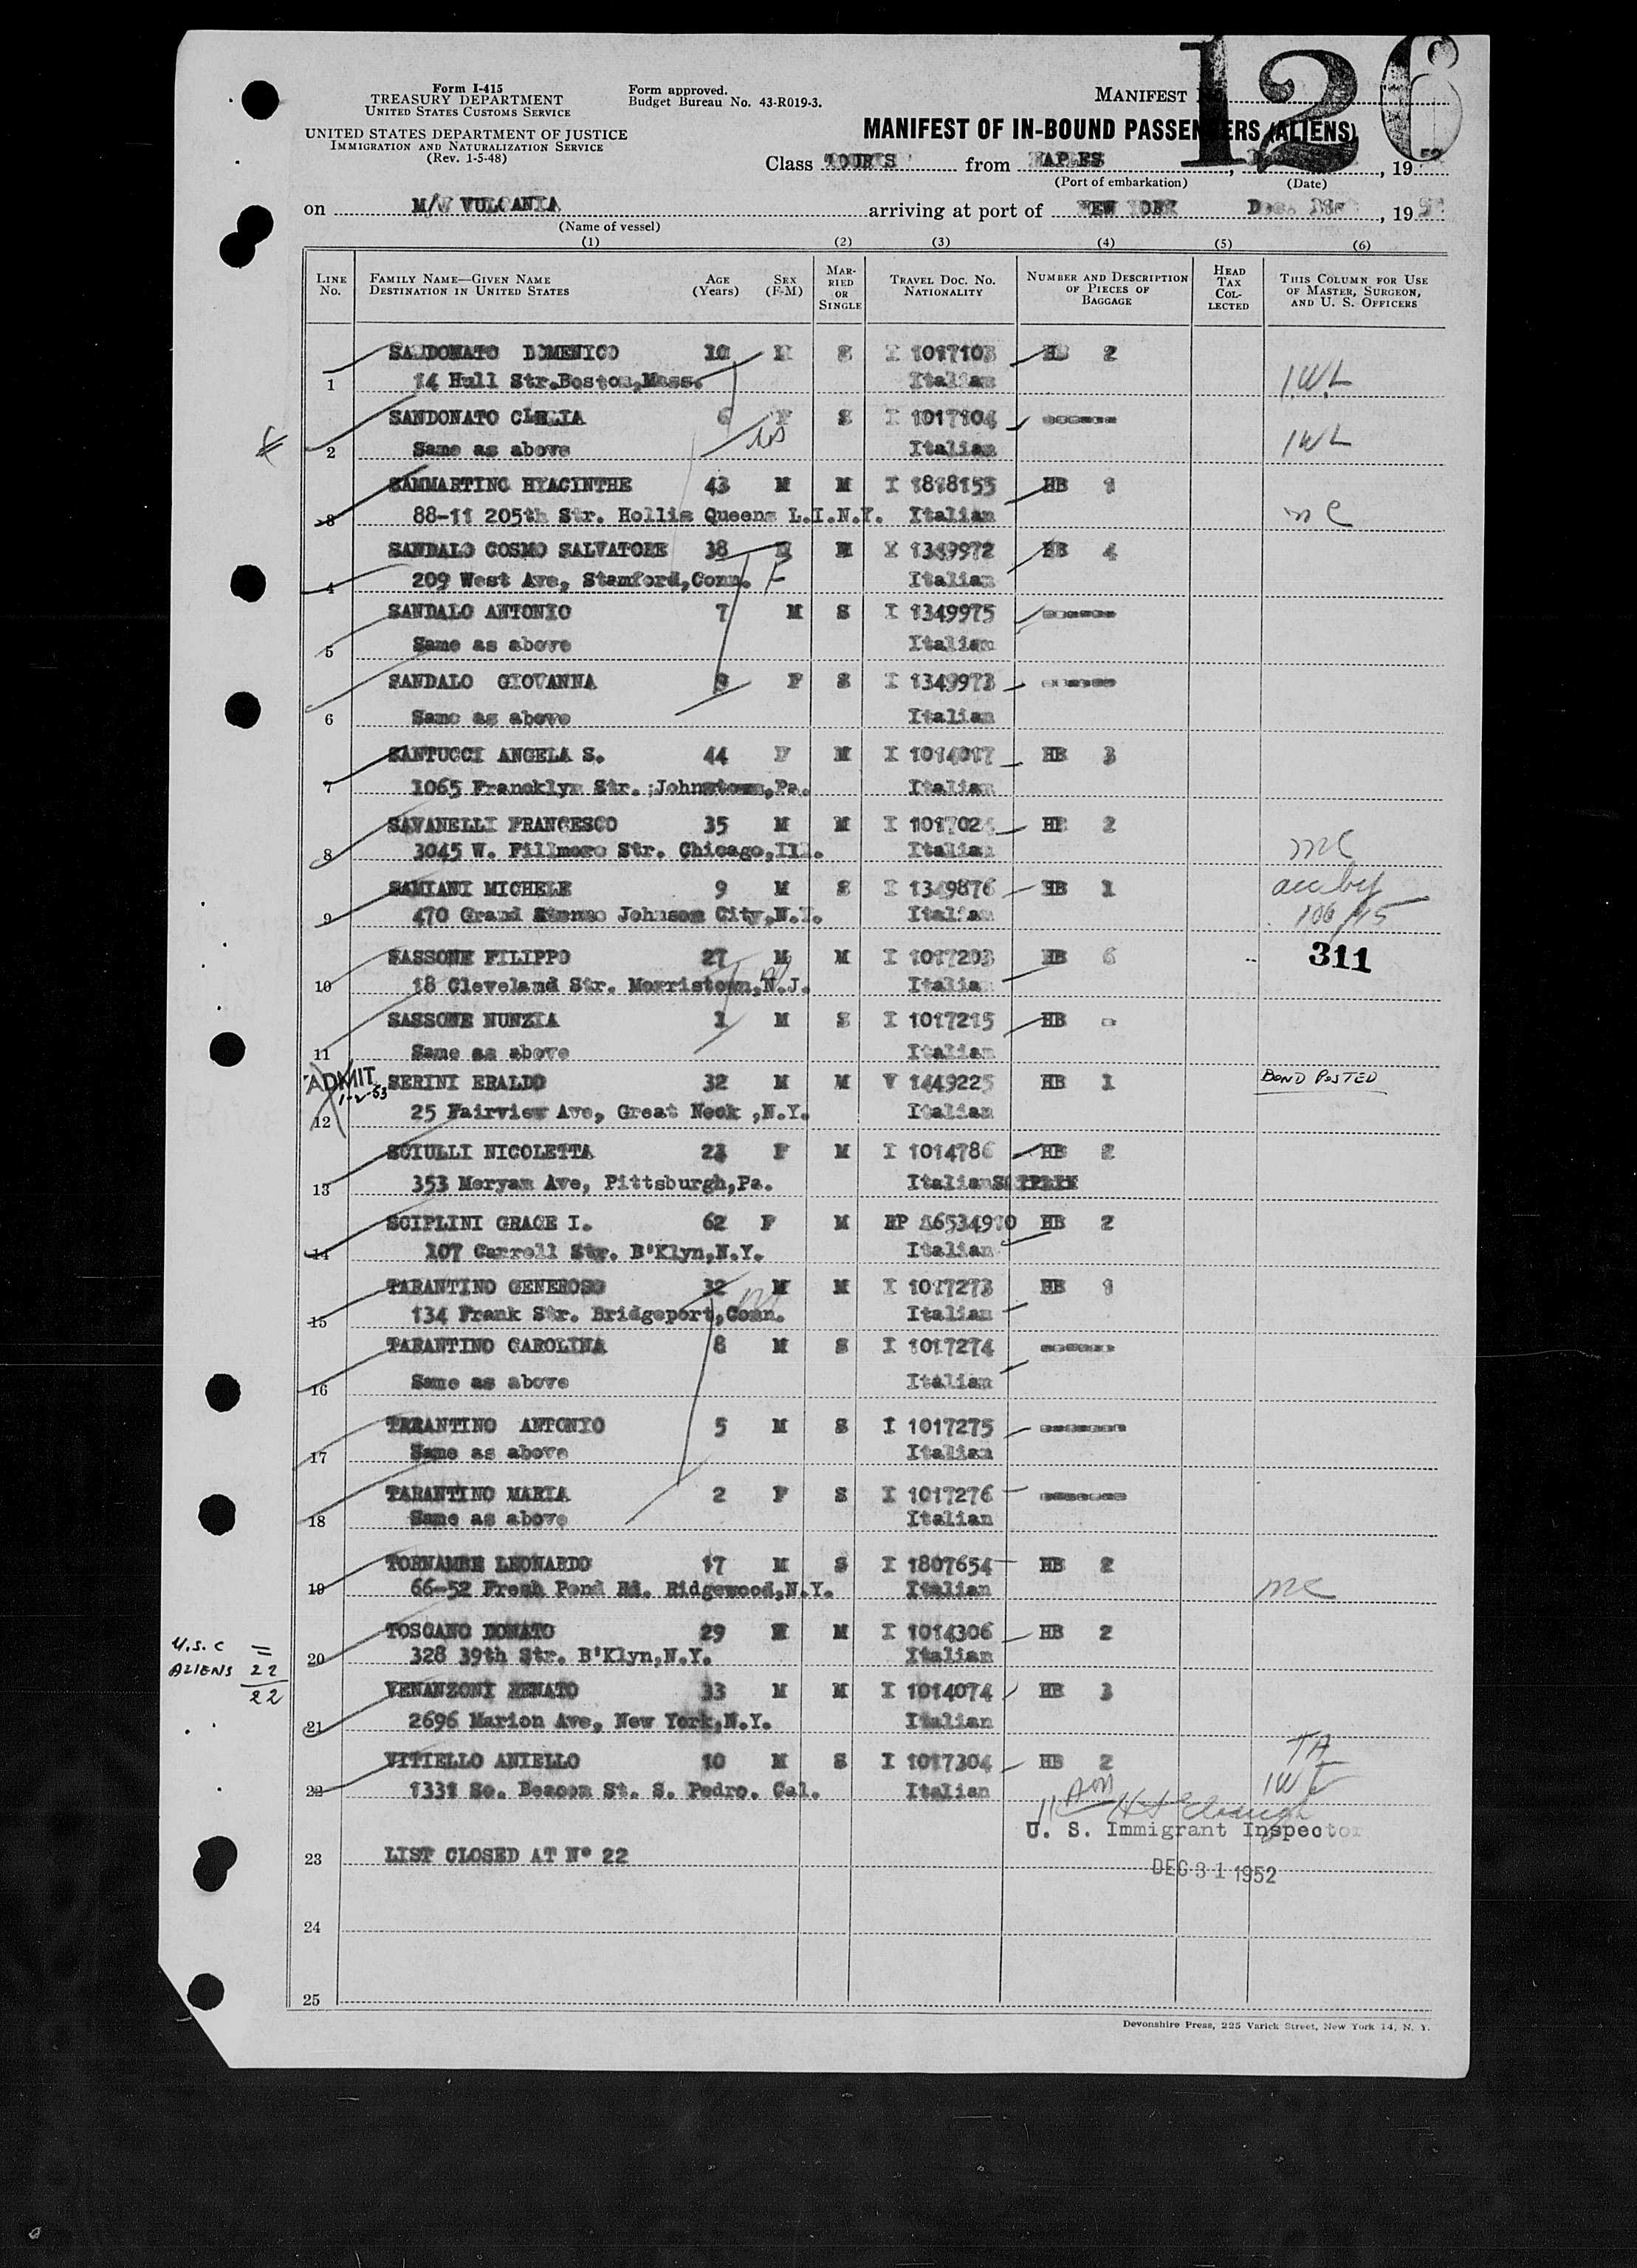 126
Form I-415
TREASURY DEPARTMENT
UNITED STATES CUSTOMS SERVICE
UNITED STATES DEPARTMENT OF JUSTICE
IMMIGRATION AND NATURALIZATION SERVICE
(Rev. 1-5-48)
Form approved.
Budget Bureau No. 43-R019-3.
MANIFEST
MANIFEST OF IN-BOUND PASSENGERS (ALIENS)
Class TOURIS from NAPLES , 19 52
(Port of embarkation) (Date)
on M/V VULCANIA arriving at port of NEW YORK , 19
(Name of vessel)
(1) (2) (3) (4) (5) (6)
LINE No. FAMILY NAME—GIVEN NAME DESTINATION IN UNITED STATES AGE (Years) SEX (F-M) MARRIED OR SINGLE TRAVEL DOC. No. NATIONALITY NUMBER AND DESCRIPTION OF PIECES OF BAGGAGE HEAD TAX COLLECTED THIS COLUMN FOR USE OF MASTER, SURGEON, AND U. S. OFFICERS
SANDONATO DOMENICO 10 M S I 1017103 HB 2
1 14 Hull Str.Boston,Mass. Italian IWL
SANDONATO CLELIA 6 F S I 1017104
2 Same as above Italian IWL
SAMMARTINO HYACINTHE 43 M M I 1818155 HB 1
3 88-11 205th Str. Hollis Queens L.I.N.Y. Italian mc
SANDALO COSMO SALVATORE 38 M M I 1349972 HB 4
4 209 West Ave, Stamford,Conn. Italian
SANDALO ANTONIO 7 M S I 1349975
5 Same as above Italian
SANDALO GIOVANNA 9 F S I 1349973
6 Same as above Italian
SANTUCCI ANGELA S. 44 F M I 1014017 HB 3
7 1065 Francklyn Str. ;Johnstown,Pa. Italian
SAVANELLI FRANCESCO 35 M M I 101702 HB 2
8 3045 W. Fillmore Str. Chicago,Ill. Italian mc
SAMIANI MICHELE 9 M S I 1349876 HB 1
9 470 Grand Johnson City,N.Y. Italian
106/15
SASSONE FILIPPO 27 M M I 1017203 HB 6 311
10 18 Cleveland Str. Morristown,N.J. Italian
SASSONE NUNZIA 1 M S I 1017215 HB
11 Same as above Italian
ADMIT 1-2-53
SERINI ERALDO 32 M M V 1449225 HB 1 BOND POSTED
12 25 Fairview Ave, Great Neck ,N.Y. Italian
SCIULLI NICOLETTA 23 F M I 1014786 HB 2
13 353 Meryam Ave, Pittsburgh,Pa. Italian
SCIPLINI GRACE I. 62 F M HB 2
14 107 Carroll Str. B'Klyn,N.Y. Italian
TARANTINO GENEROSO 32 M M I 1017273 HB 1
15 134 Frank Str. Bridgeport,Conn. Italian
TARANTINO CAROLINA 8 M S I 1017274
16 Same as above Italian
TARANTINO ANTONIO 5 M S I 1017275
17 Same as above Italian
TARANTINO MARIA 2 F S I 1017276
18 Same as above Italian
TORNAMBE LEONARDO 17 M S I 1807654 HB 2
19 66-52 Fresh Pond Rd. Ridgewood,N.Y. Italian mc
TOSCANO DONATO 29 M M I 1014306 HB 2
20 328 39th Str. B'Klyn,N.Y. Italian
U.S.C =
ALIENS 22
22
VENANZONI RENATO 33 M M I 1014074 HB 3
21 2696 Marion Ave, New York,N.Y. Italian
VITIELLO ANIELLO 10 M S I 1017304 HB 2
22 1331 So. Beacon St. S. Pedro. Cal. Italian IWL
U. S. Immigrant Inspector
23 LIST CLOSED AT N° 22
DEC 31 1952
24
25
Devonshire Press, 225 Varick Street, New York 14, N. Y.